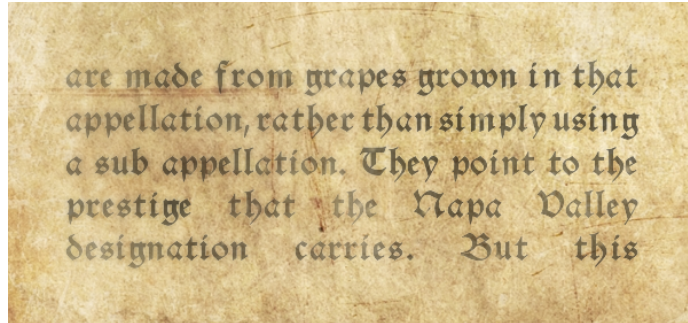 are made from grapes grown in that
appellation, rather than simply using
a sub appellation. They point to the
prestige that the Napa Valley
designation carries. But this